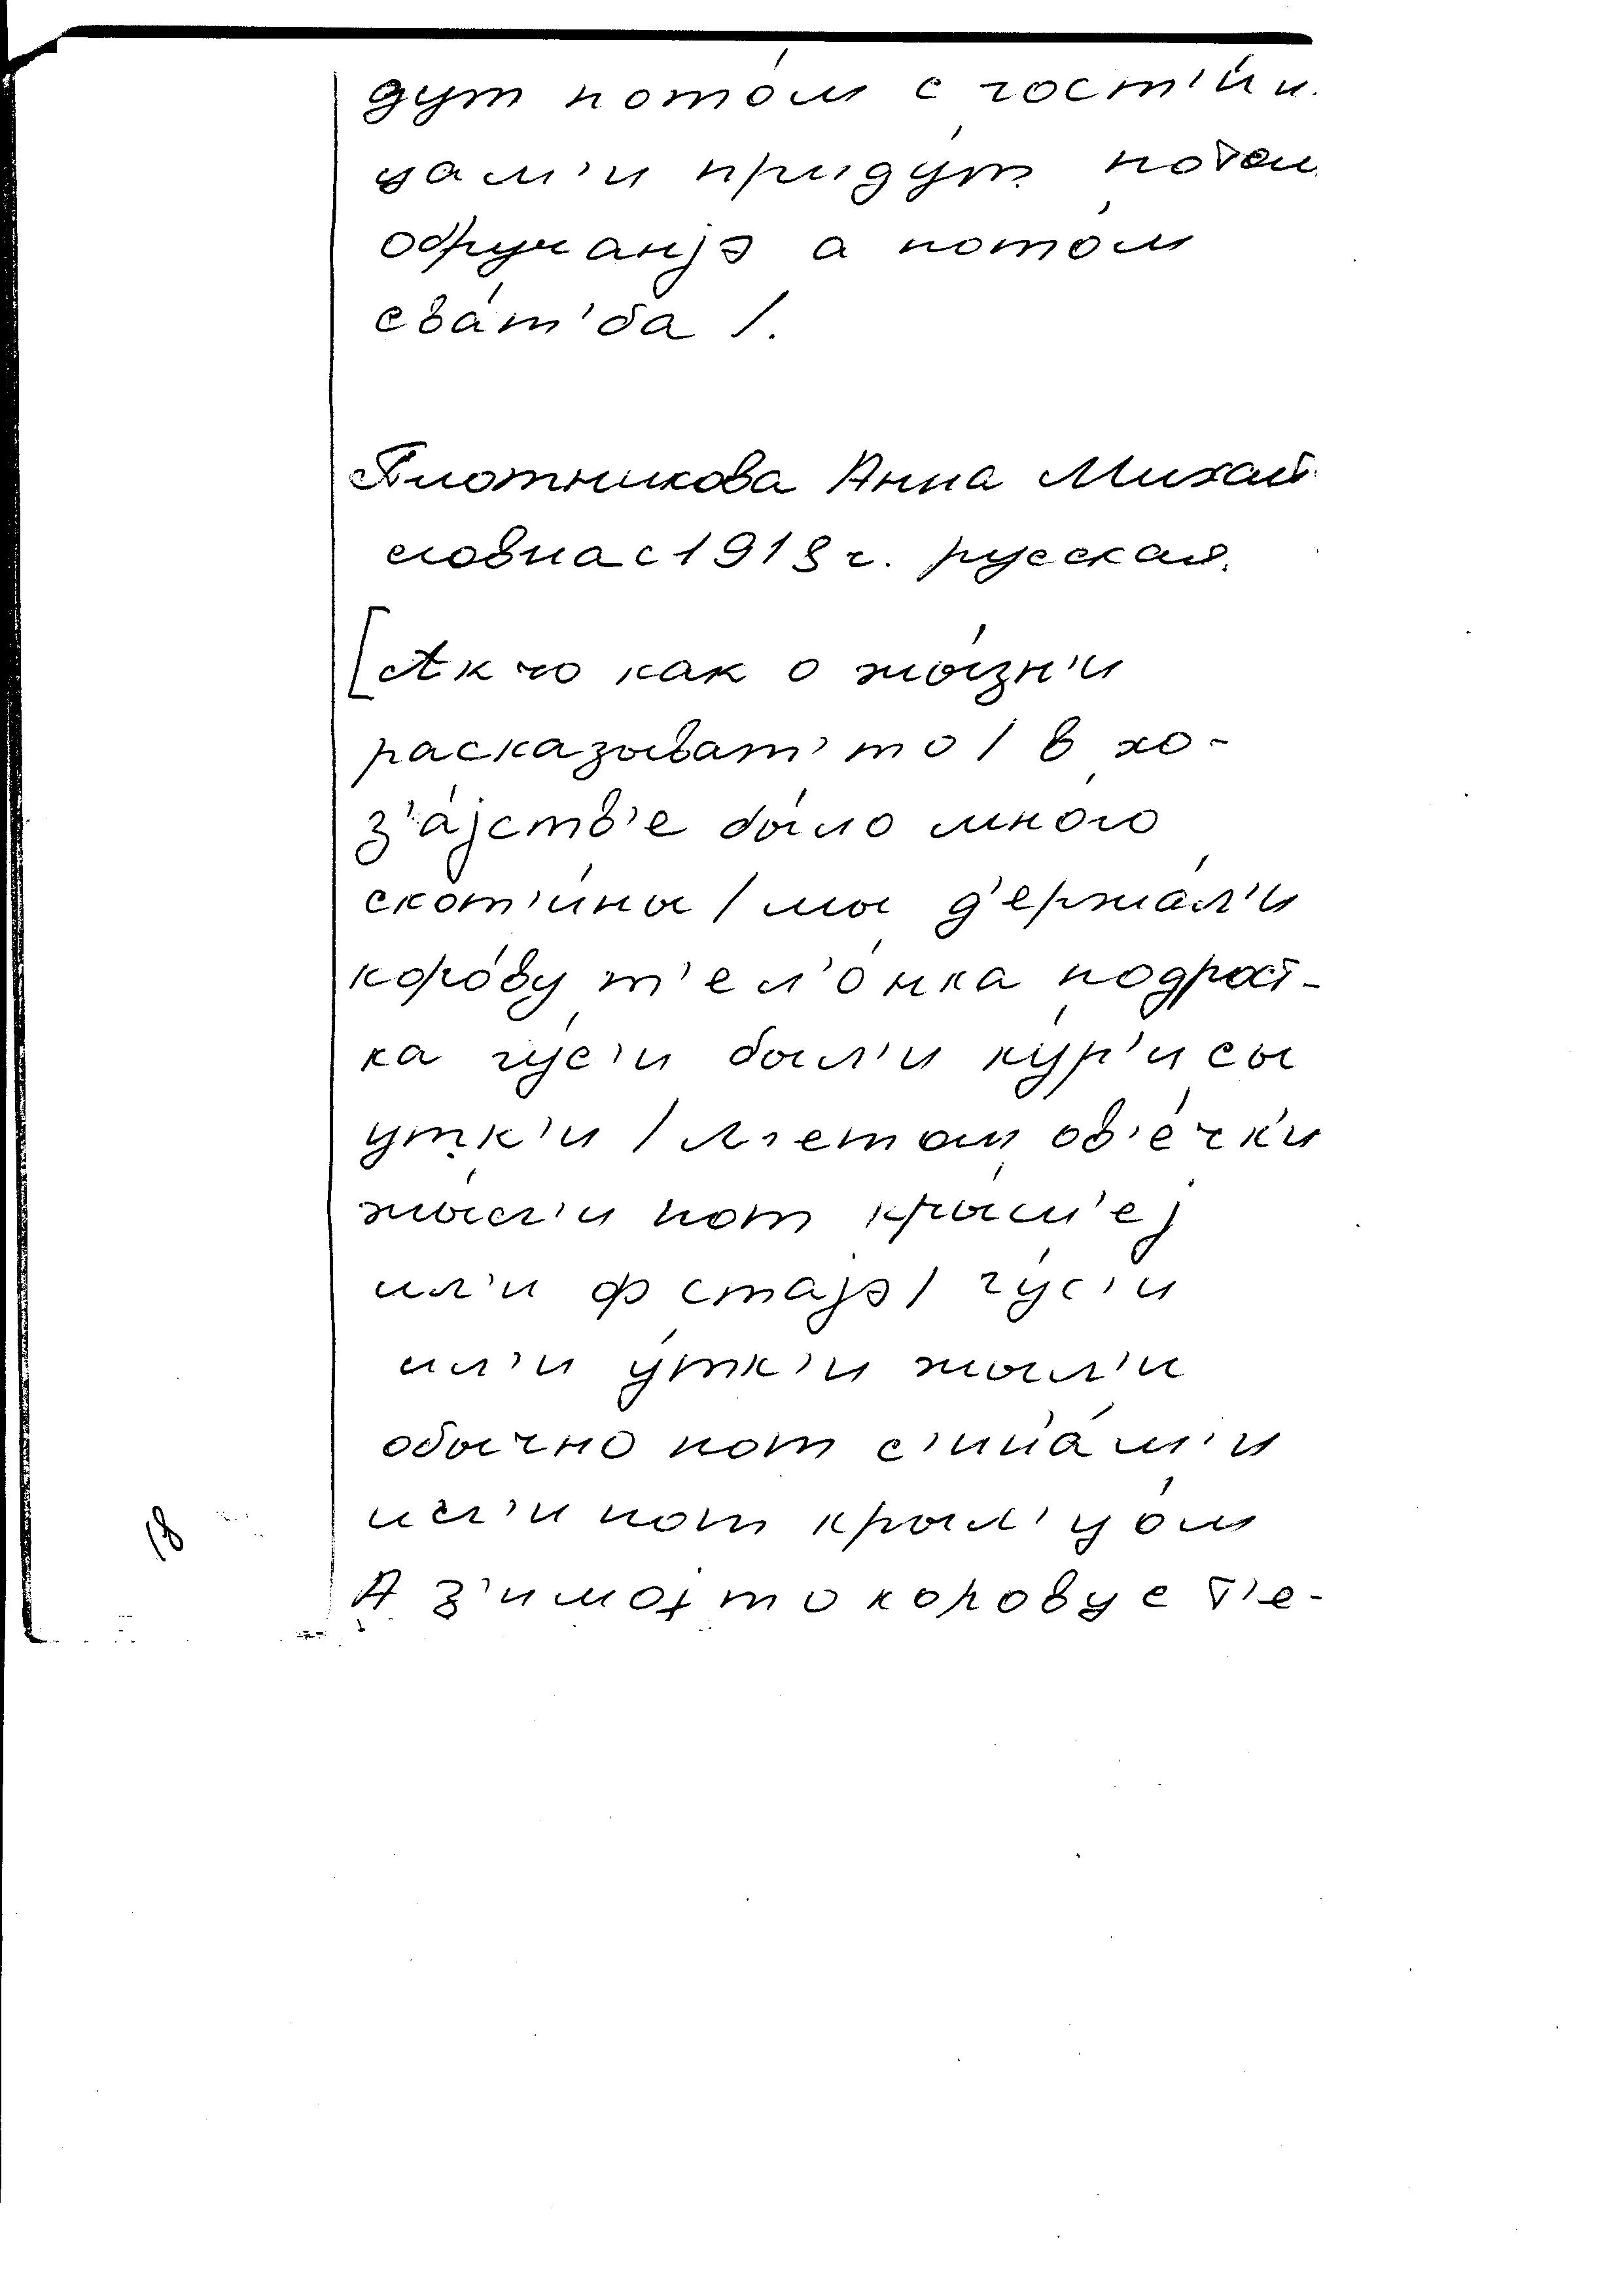 дут пото́м с гост'и́н
цам'и прид'у́т потом
обручанjэ а пото́м
сва́т'ба /.
Плотникова Анна Михай
ловна с 1918 г. русская.
[А к чо как о жы́зн'и
расказыват' то / в хо-
з'а́jств'е бы́ло мно́го
скот'и́ны / мы д'ержа́л'и
коро́ву т'ел'о́нка подрост-
ка гу́с'и был'и ку́р'ицы
утк'и / л'етом ов'е́чк'и
жы́л'и пот кры́ш'еj
ил'и ф стаjэ / гу́с'и
ил'и у́тк'и жыл'и
обычно пот с'ин'а́м'и
ил'и пот крыл'цо́м
А з'имоj то корову с т'е-
18